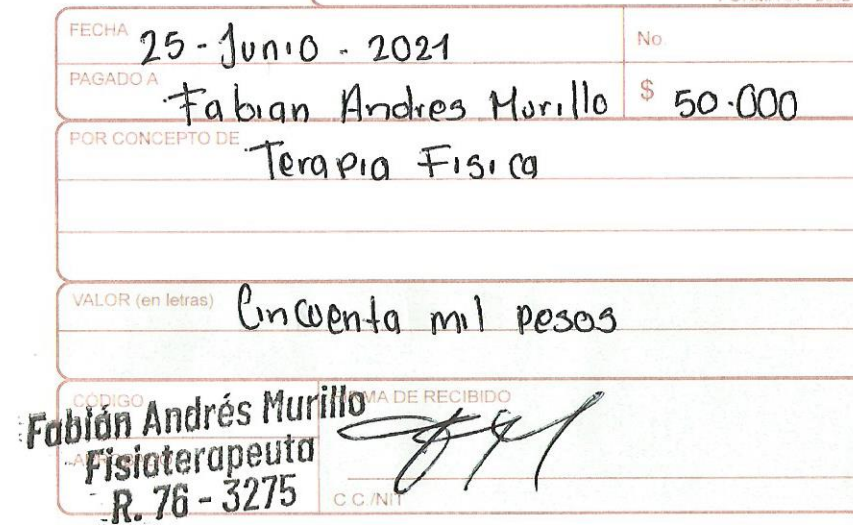 FECHA 25 - Junio - 2021 No.
PAGADO A Fabian Andres Murillo $ 50.000
POR CONCEPTO DE Terapia Fisica
VALOR (en letras) Cincuenta mil pesos
CODIGO FIRMA DE RECIBIDO
Fabián Andrés Murillo
Fisioterapeuta
R. 76 - 3275
C.C./NIT